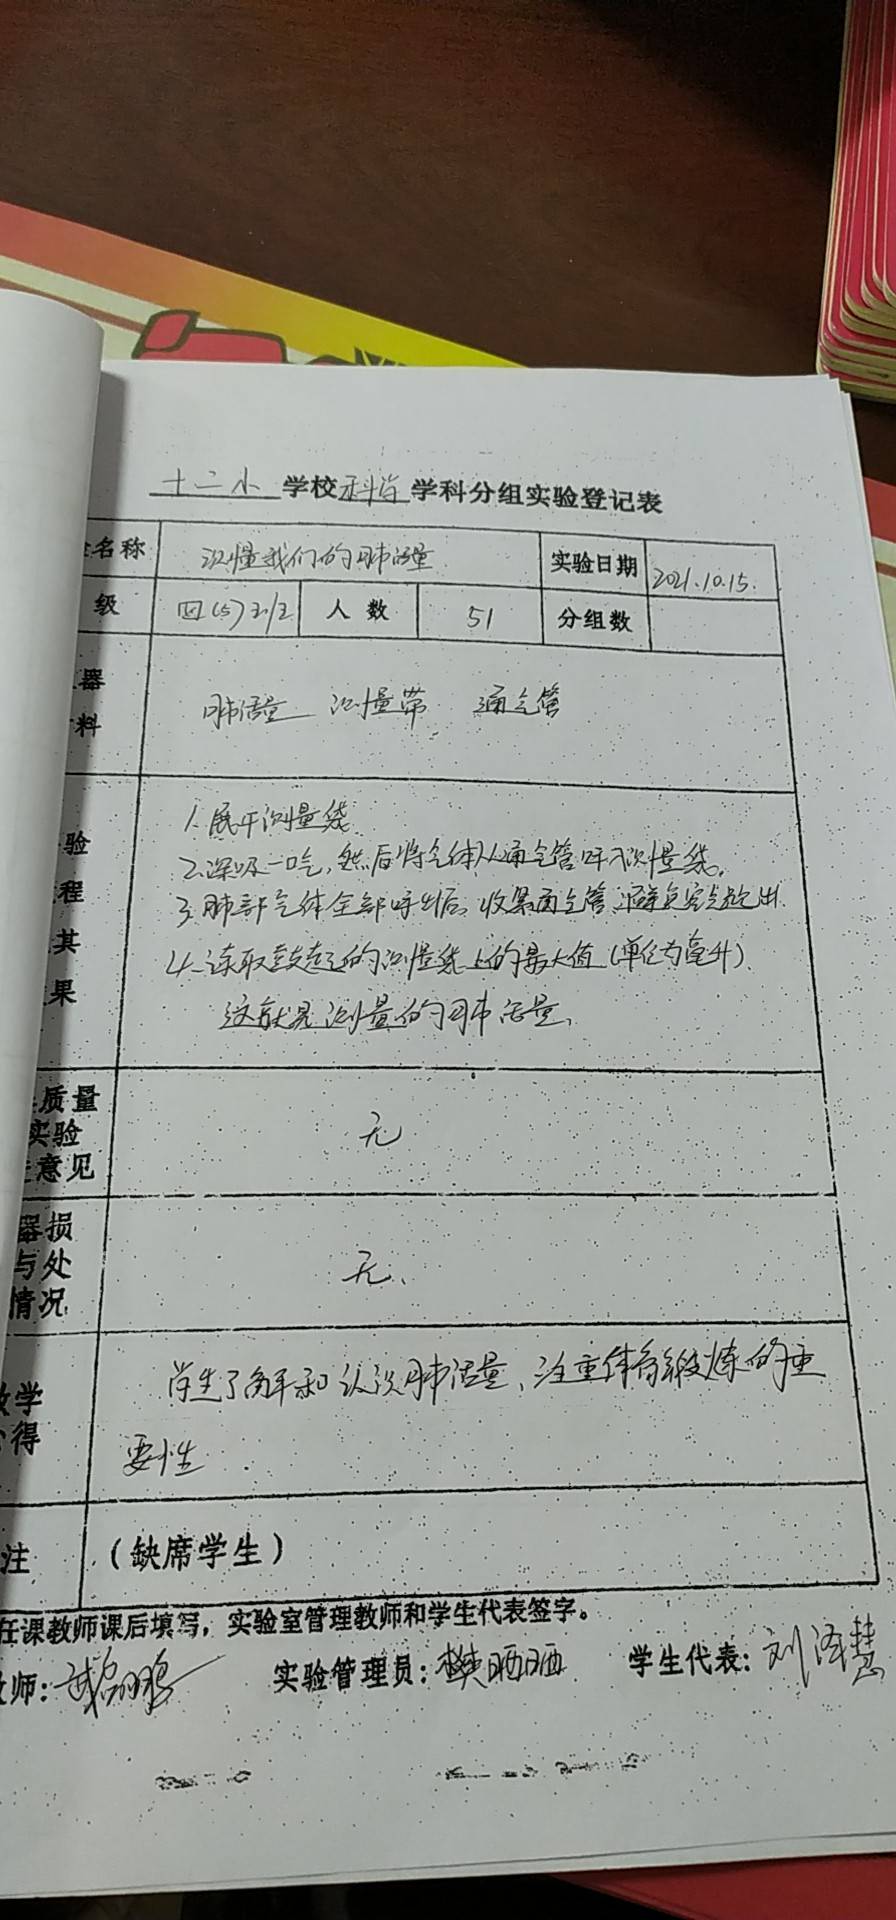 十二小学校科学学科分组实验登记表
名称 测量我们的肺活量 实验日期 2021.10.15.
级 四(5) 人数 51 分组数
器
料
肺活量 测量带 通气管
1.展平测量袋
验
2.深吸一口气,然后将气体从通气管呼入测量袋。
程
3.肺部气体全部呼出后,收紧通气管,
其
4.读取鼓起的测量袋上的最大值(单位为毫升)
果
这就是测量的肺活量。
质量
实验
意见
无
器损
与处
情况
无.
学生了解和认识肺活量,注重体育锻炼的重
教学
得
要性
注 (缺席学生)
任课教师课后填写,实验室管理教师和学生代表签字。
师: 实验管理员:樊晒晒 学生代表:刘泽慧